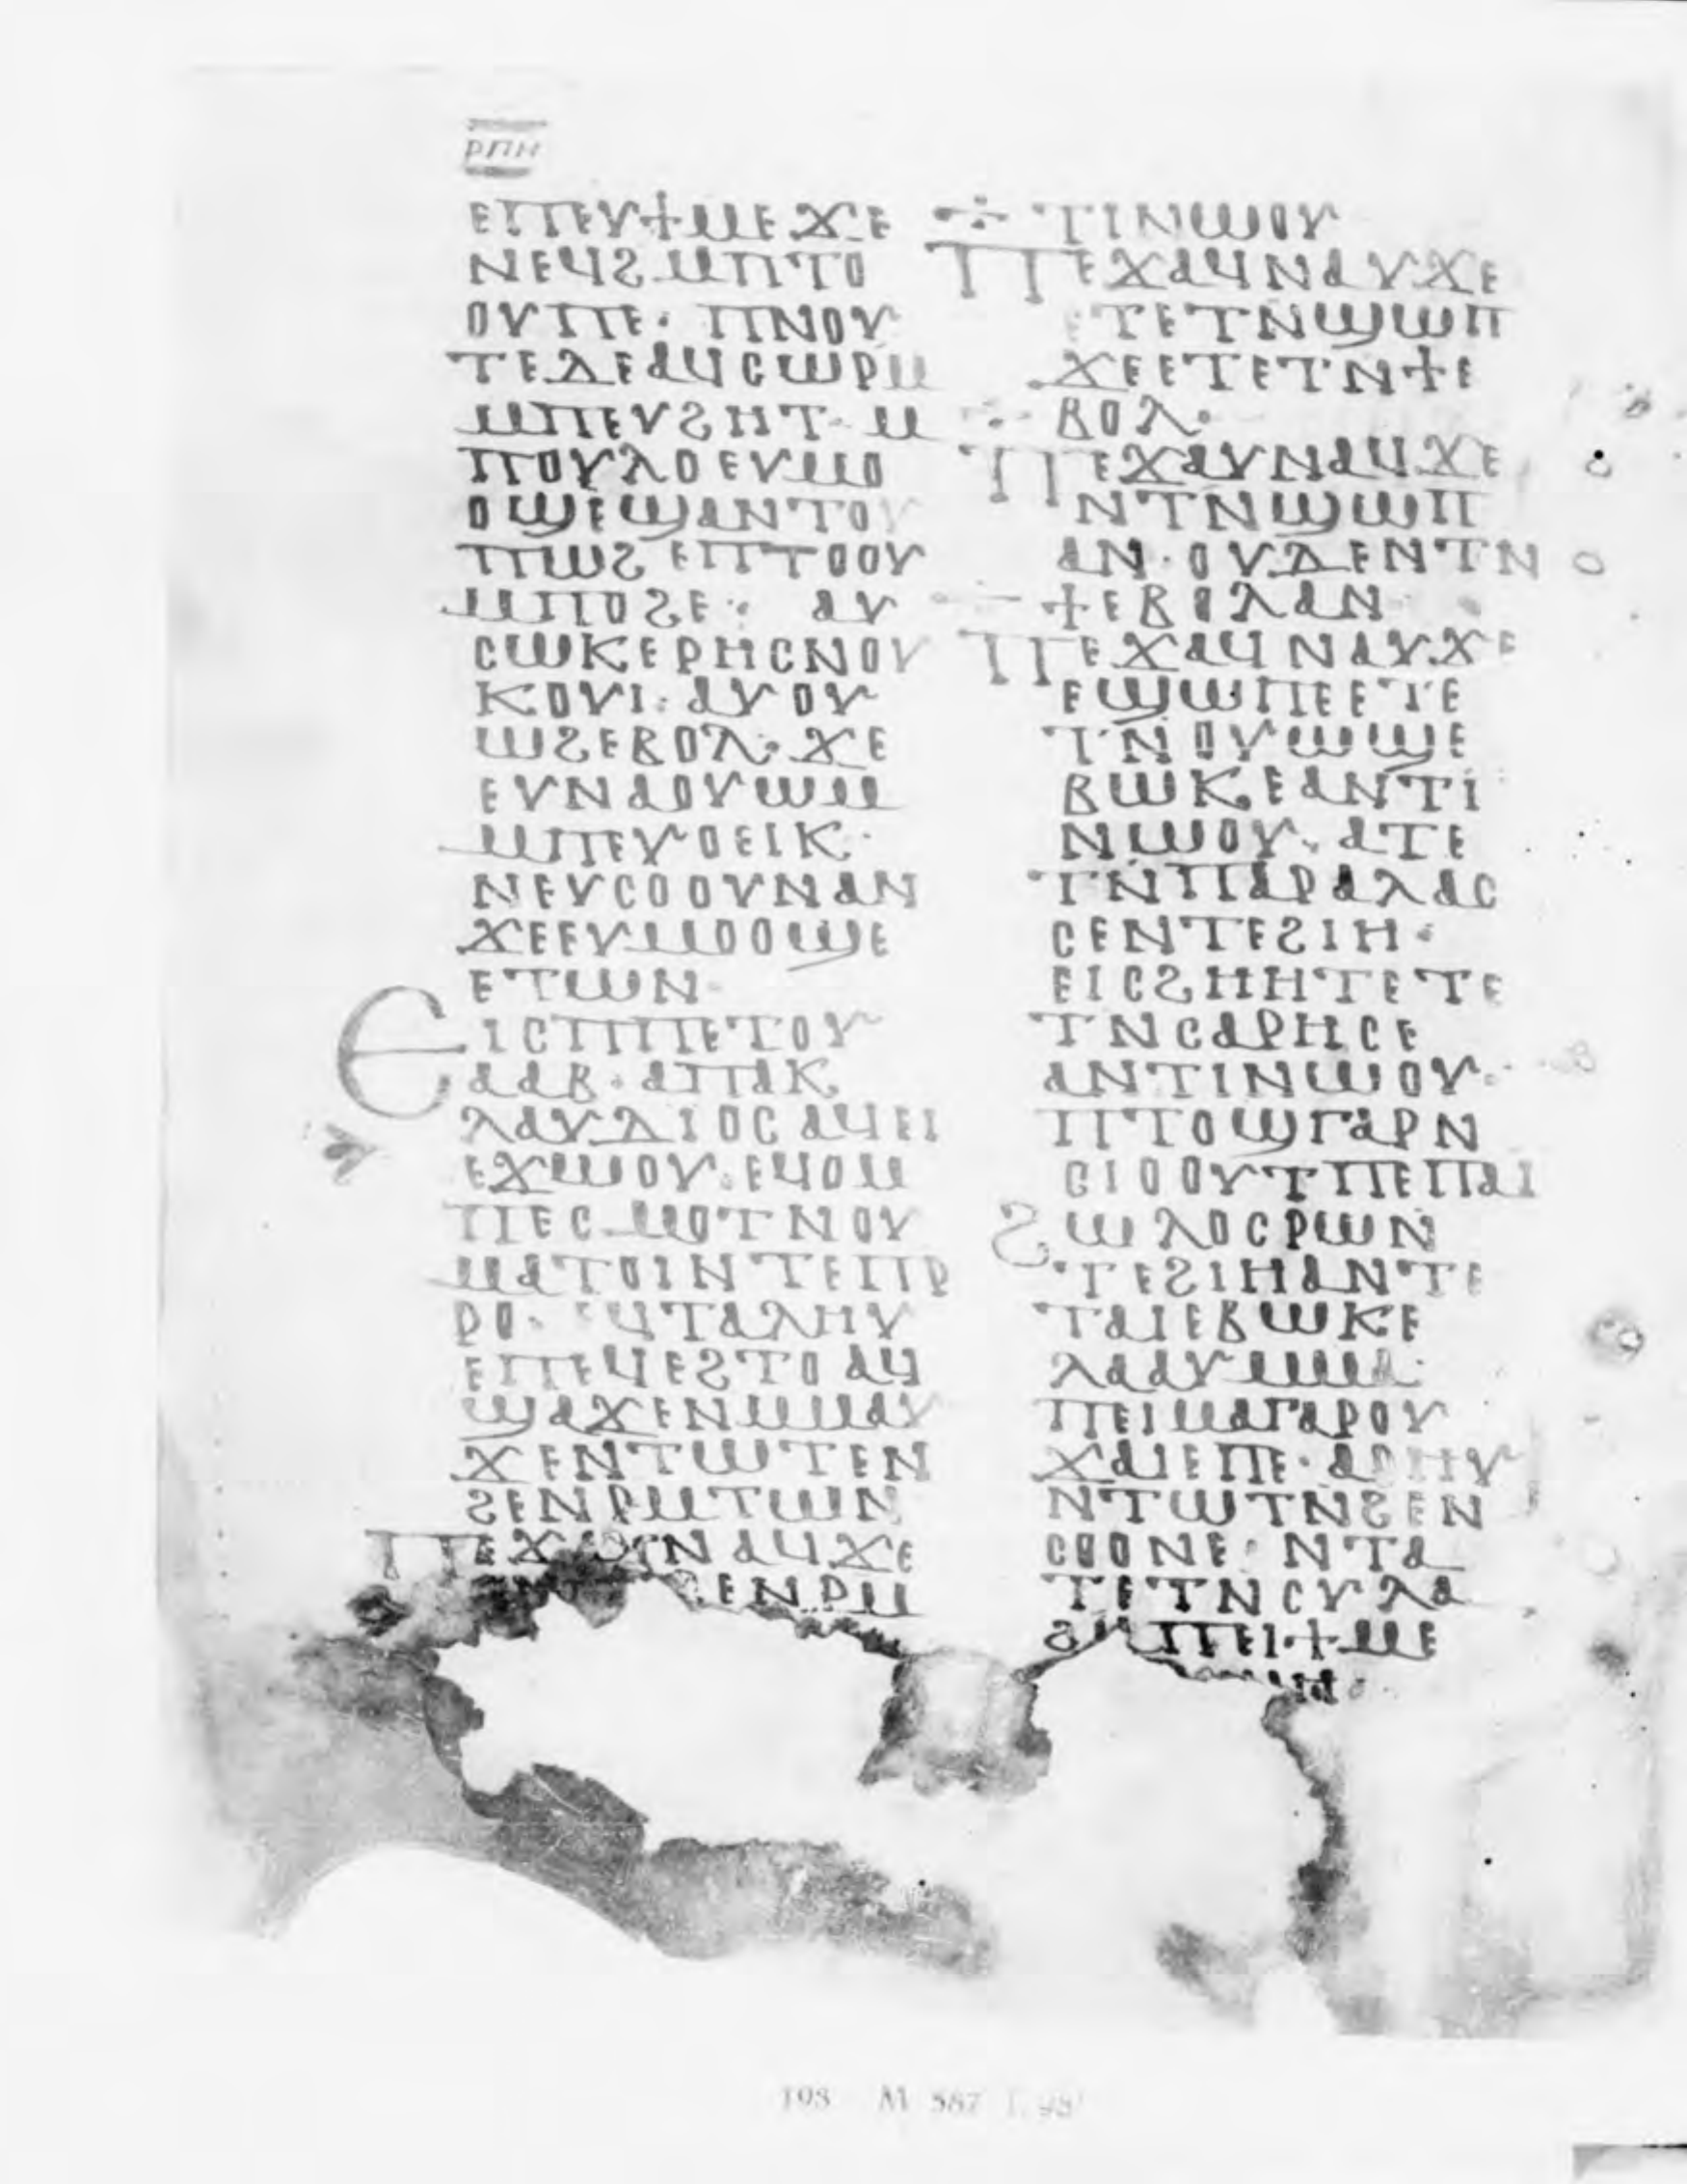 ⲣⲡⲏ
ⲉⲡⲉⲩϯⲙⲉϫⲉ
ⲛⲉϥϩⲙⲡⲧⲟ
ⲟⲩⲡⲉ· ⲡⲛⲟⲩ
ⲧⲉⲇⲉⲁϥⲥⲱⲣⲙ
ⲙⲡⲉⲩϩⲏⲧ· ⲙ
ⲡⲟⲩⲗⲟⲉⲩⲙⲟ
ⲟϣⲉϣⲁⲛⲧⲟⲩ
ⲡⲱϩ ⲉⲡⲧⲟⲟⲩ
ⲙⲡⲟϩⲉ: ⲁⲩ
ⲥⲱⲕⲉⲣⲏⲥⲛⲟⲩ
ⲕⲟⲩⲓ: ⲁⲩⲟⲩ
ⲱϩⲉⲃⲟⲗ: ϫⲉ
ⲉⲩⲛⲁⲟⲩⲱⲙ
ⲙⲡⲉⲩⲟⲉⲓⲕ·
ⲛⲉⲩⲥⲟⲟⲩⲛⲁⲛ
ϫⲉⲉⲩⲙⲟⲟϣⲉ
ⲉⲧⲱⲛ·
ⲉⲓⲥⲡⲡⲉⲧⲟⲩ
ⲁⲁⲃ· ⲁⲡⲁⲕ
ⲗⲁⲩⲇⲓⲟⲥⲁϥⲉⲓ
ⲉϫⲱⲟⲩ: ⲉϥⲟⲙ
ⲡⲉⲥⲙⲟⲧⲛⲟⲩ
ⲙⲁⲧⲟⲓⲛⲧⲉⲡⲣ
ⲣⲟ· ⲉϥⲧⲁⲗⲏⲩ
ⲉⲡⲉϥⲉϩⲧⲟⲁϥ
ϣⲁϫⲉⲛⲙⲙⲁⲩ
ϫⲉⲛⲧⲱⲧⲉⲛ
ϩⲉⲛⲣⲙⲧⲱⲛ
ⲡⲉϫⲁⲩⲛⲁϥϫⲉ
ϩⲉⲛⲣⲙ
ⲧⲓⲛⲱⲟⲩ
ⲡⲉϫⲁϥⲛⲁⲩϫⲉ
ⲉⲧⲉⲧⲛϣⲱⲡ
ϫⲉⲉⲧⲉⲧⲛϯⲉ
ⲃⲟⲗ·
ⲡⲉϫⲁⲩⲛⲁϥϫⲉ
ⲛⲧⲛϣⲱⲡ
ⲁⲛ· ⲟⲩⲇⲉⲛⲧⲛ
ϯⲉⲃⲟⲗⲁⲛ
ⲡⲉϫⲁϥⲛⲁⲩϫⲉ
ⲉϣⲱⲡⲉⲉⲧⲉ
ⲧⲛⲟⲩⲱϣⲉ
ⲃⲱⲕⲉⲁⲛⲧⲓ
ⲛⲱⲟⲩ· ⲁⲧⲉ
ⲧⲛⲡⲁⲣⲁⲗⲁⲥ
ⲥⲉⲛⲧⲉϩⲓⲏ·
ⲉⲓⲥϩⲏⲏⲧⲉⲧⲉ
ⲧⲛⲥⲁⲣⲏⲥⲉ
ⲁⲛⲧⲓⲛⲱⲟⲩ·
ⲡⲧⲟϣⲅⲁⲣⲛ
ⲥⲓⲟⲟⲩⲧⲡⲉⲡⲁⲓ
ϩⲱⲗⲟⲥⲣⲱⲛ
ⲧⲉϩⲓⲏⲁⲛⲧⲉ
ⲧⲁⲓⲉⲃⲱⲕⲉ
ⲗⲁⲁⲩⲙⲙⲁ·
ⲡⲉⲓⲙⲁⲅⲁⲣⲟⲩ
ϫⲁⲓⲉⲡⲉ· ⲁⲣⲏⲩ
ⲛⲧⲱⲧⲛϩⲉⲛ
ⲥⲟⲟⲛⲉ· ⲛⲧⲁ
ⲧⲉⲧⲛⲥⲩⲗⲁ
ϩⲙⲡⲉⲓϯⲙⲉ
108 M 587 f. 98